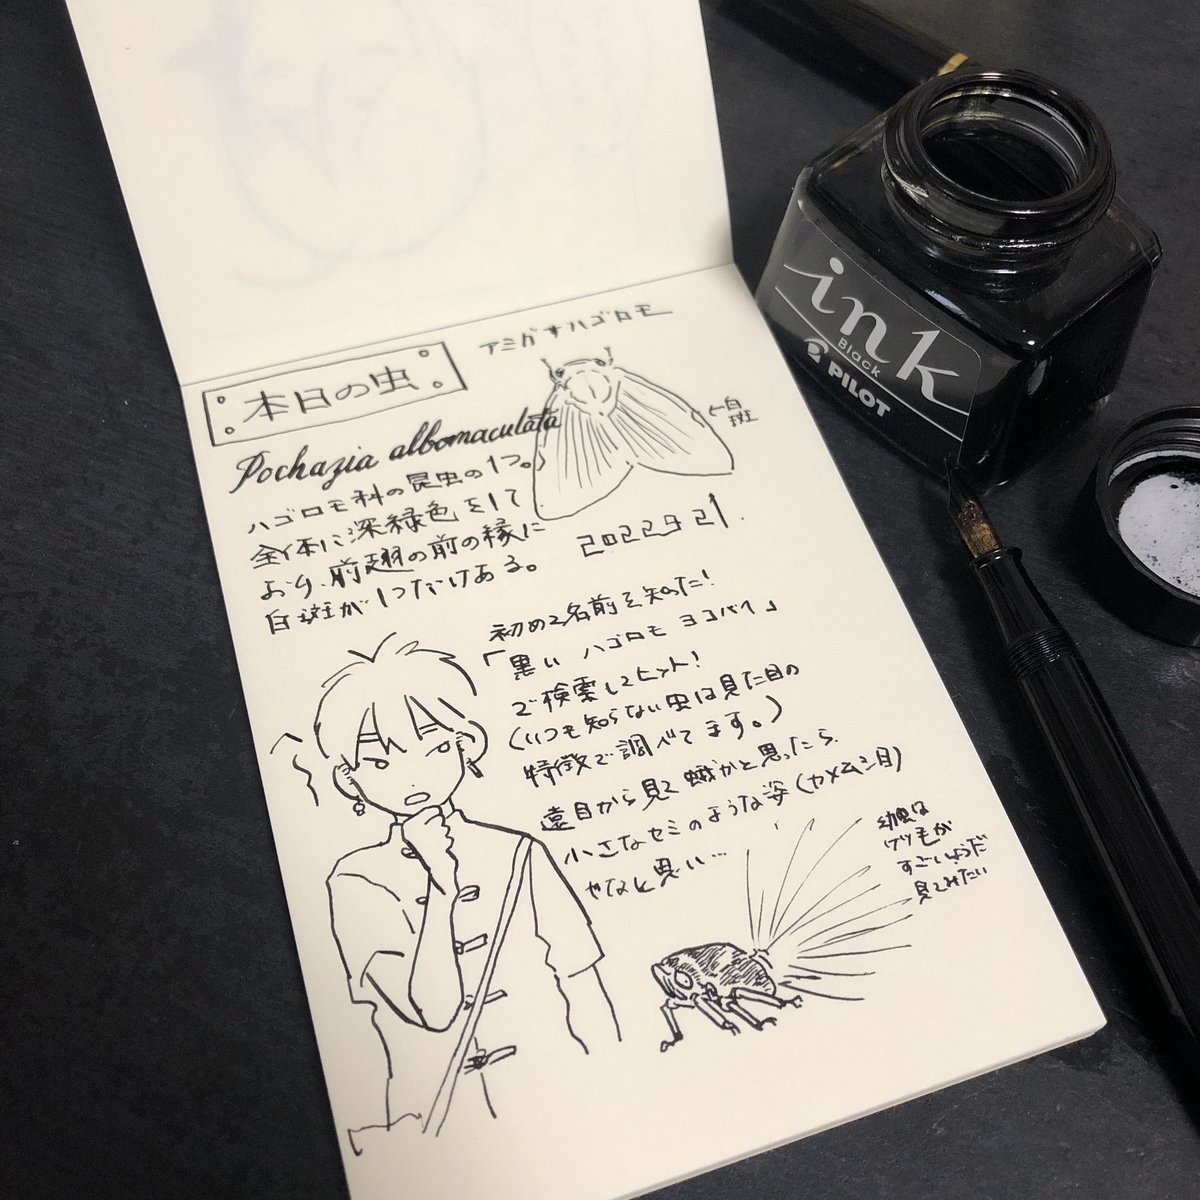 本日の虫
アミガサハゴロモ
Pochazia albomaculata
←白
斑
ハゴロモ科の昆虫の1つ。
全体に深緑色をして
おり、前翅の前の縁に
白斑が1つだけある。
2022 9 21.
初めて名前を知った!
「黒い ハゴロモ ヨコバイ」
で検索してヒット!
(いつも知らない虫は見た目の
特徴で調べてます。)
遠目から見て蛾かと思ったら
小さなセミのような姿(カメムシ目)
やなと思い…
幼虫は
ケツ毛が
すごいようだ
見てみたい
へー
ink
Black
PILOT